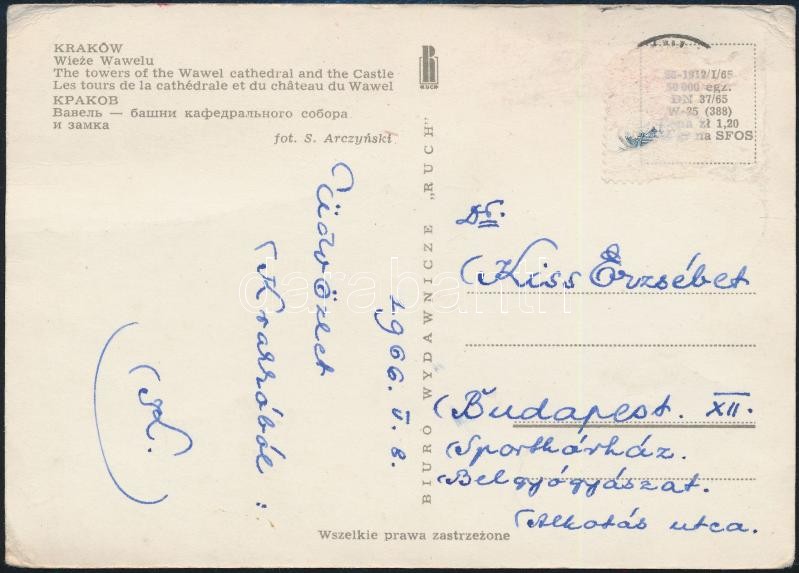 KRAKÓW
Wieże Wawelu
The towers of the Wawel cathedral and the Castle
Les tours de la cathédrale et du château du Wawel
КРАКОВ
Вавель — башни кафедрального собора
и замка
fot. S. Arczyński
RUCH
-1912/I/65
50 000 egz.
DN 37/65
W-25 (388)
zł 1,20
na SFOS
BIURO WYDAWNICZE „RUCH"
1966. V. 8.
Üdvözlet
Krakkóból:
Dr.
Kiss Erzsébet
Budapest. XII.
Sportkórház.
Belgyógyászat.
Alkotás utca.
Wszelkie prawa zastrzeżone
darabanth